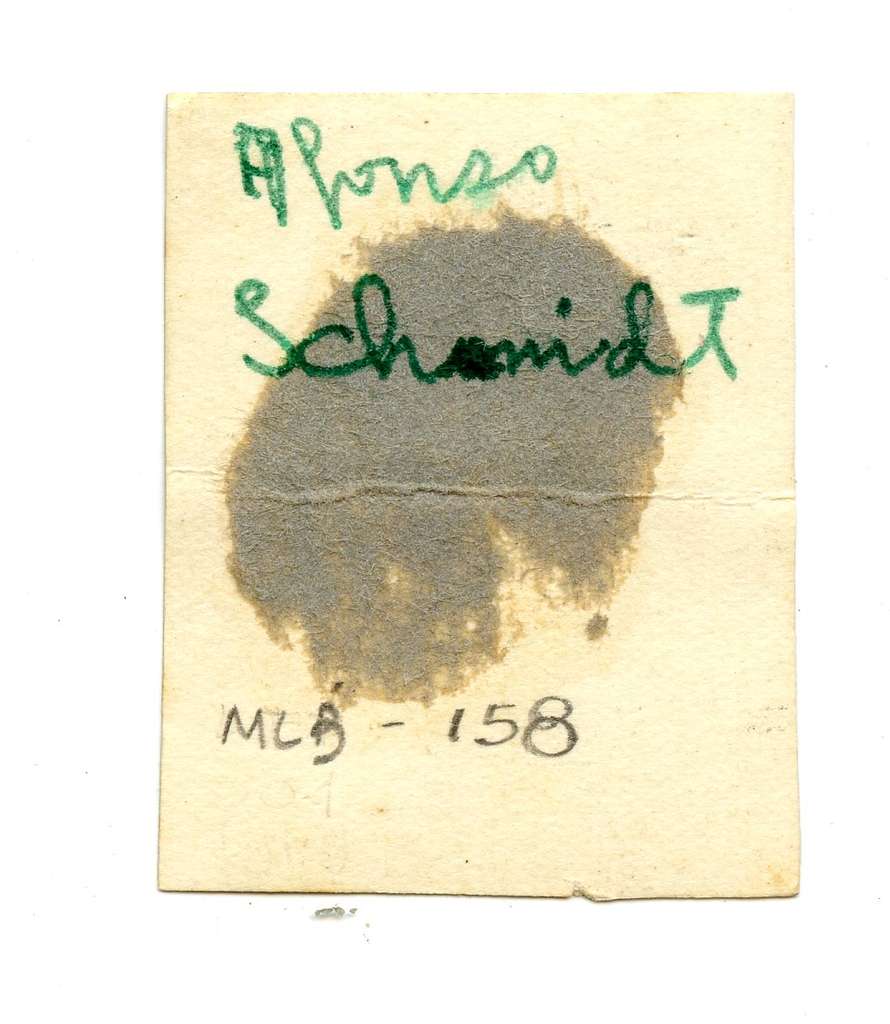 Afonso
Schmidt
MLB - 158